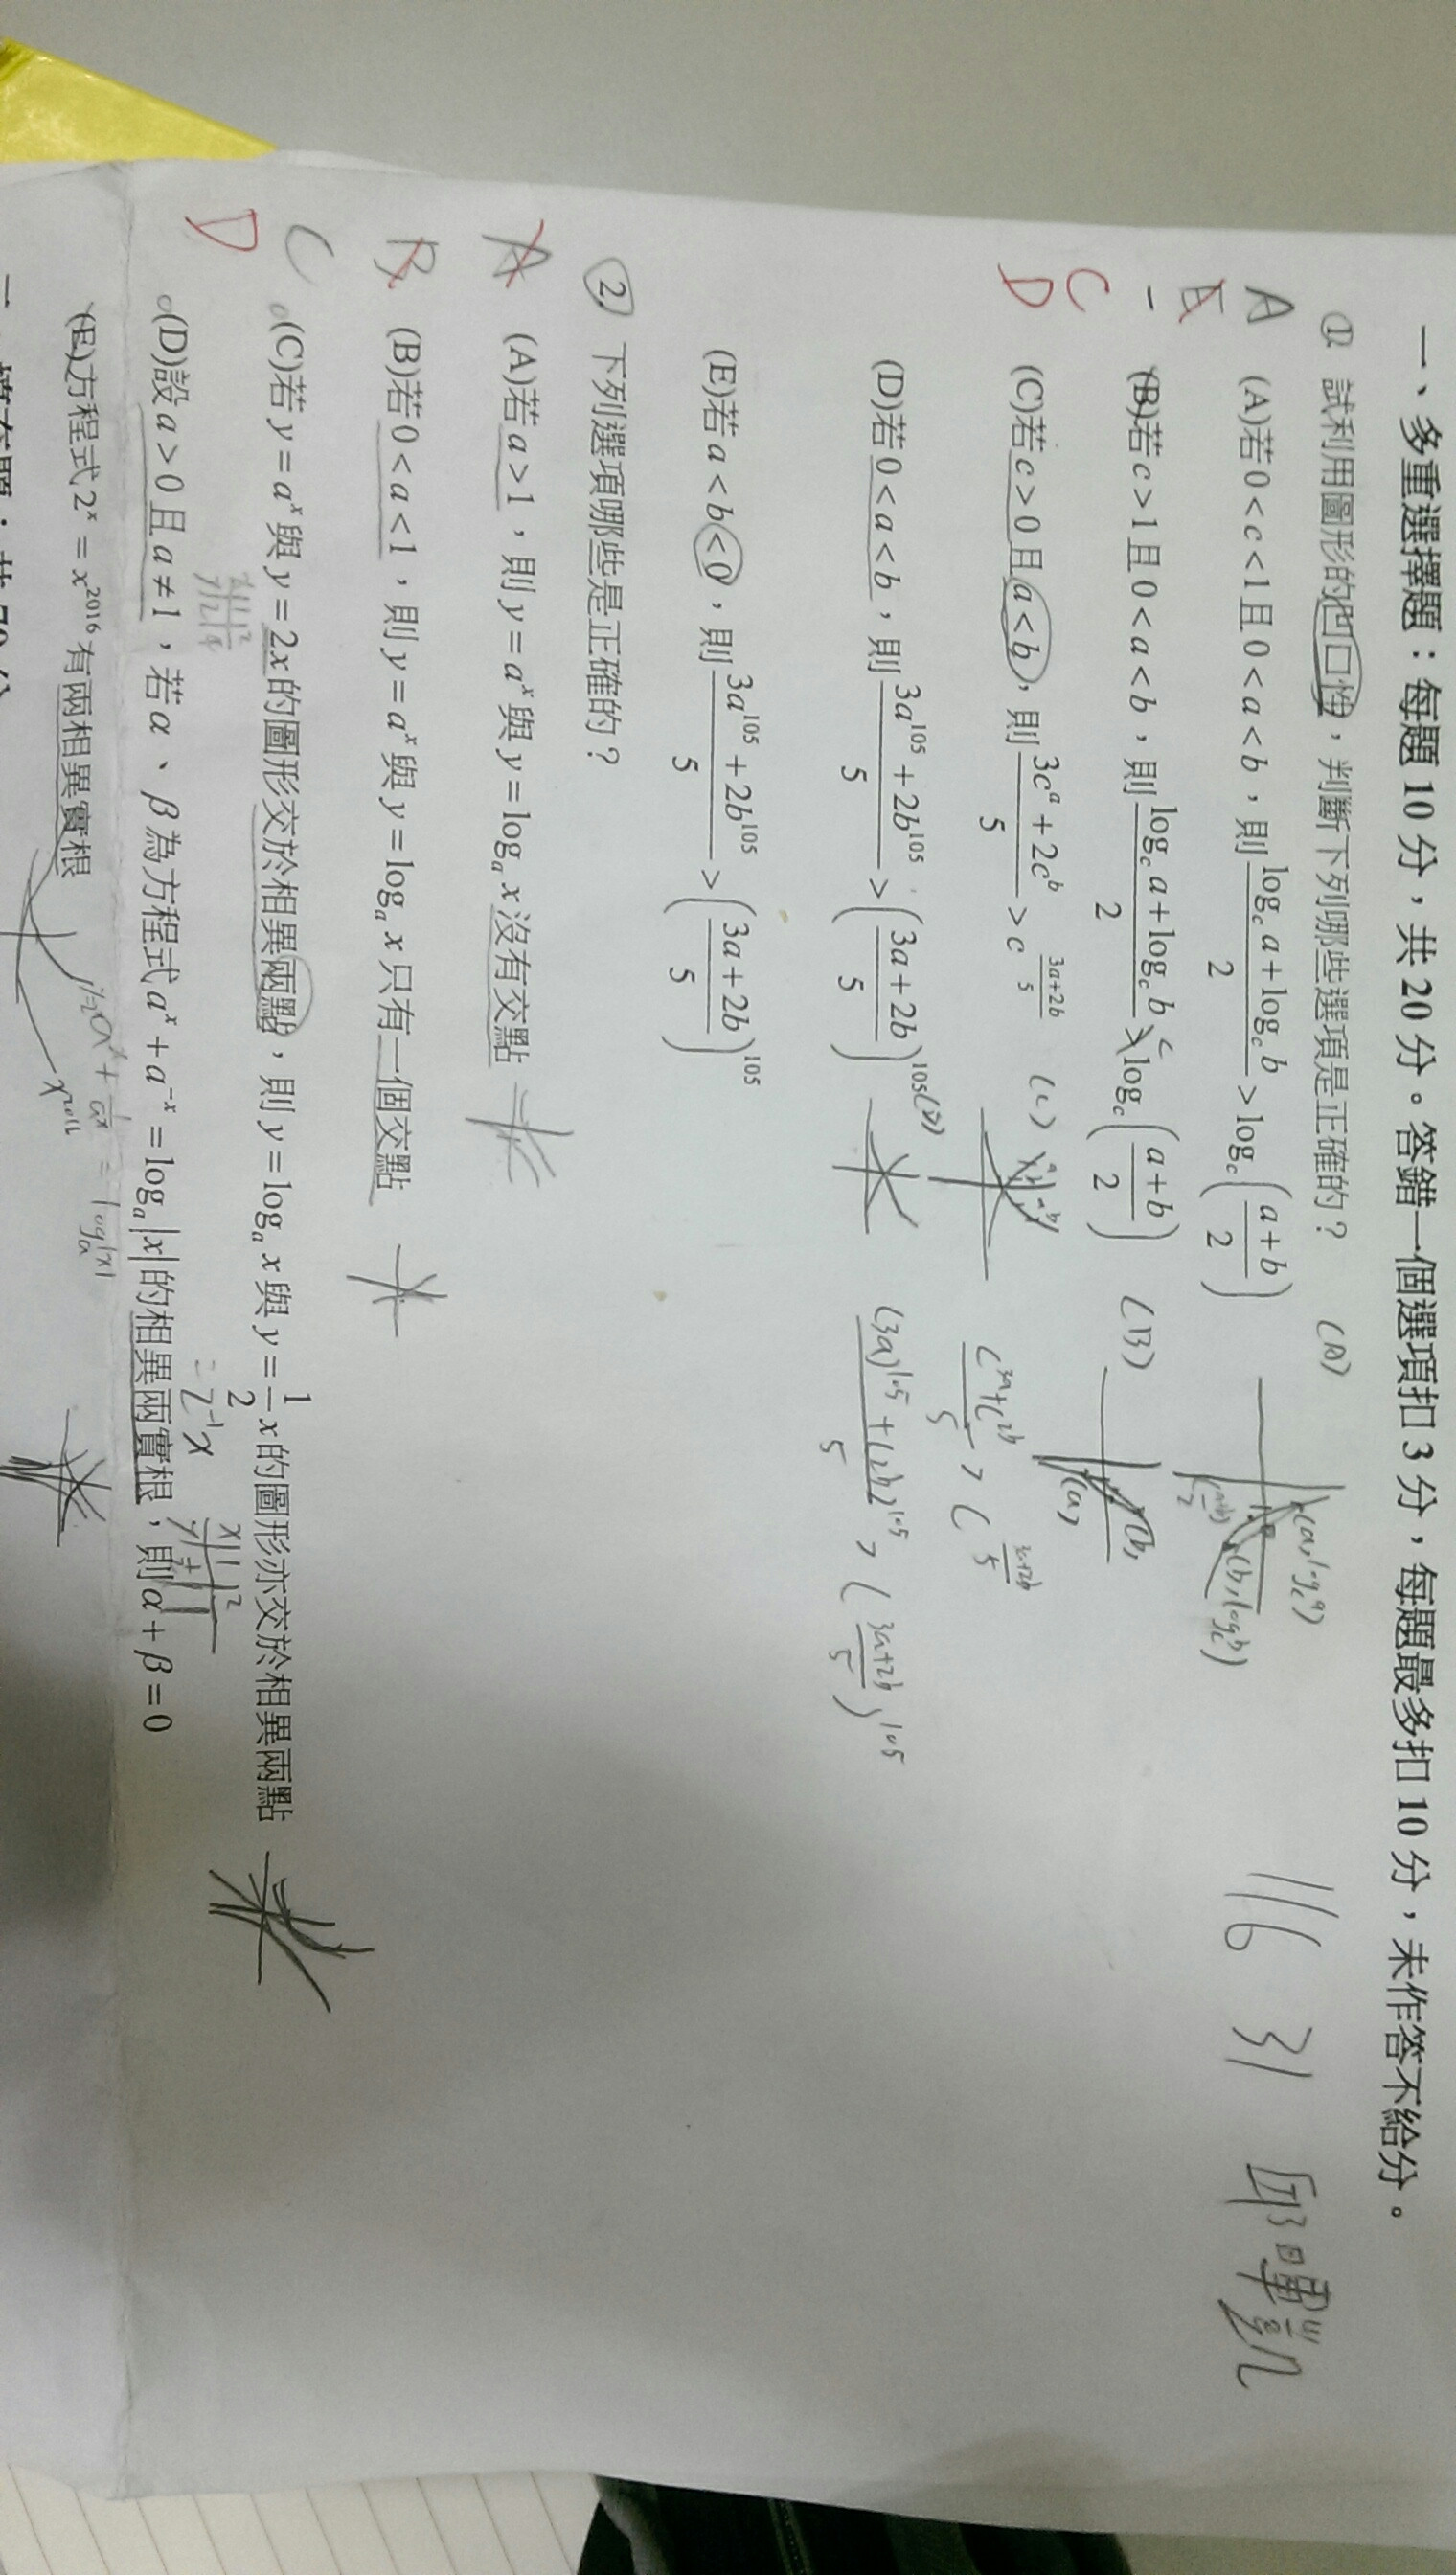 一、多重選擇題：每題 10 分，共 20 分。答錯一個選項扣 3 分，每題最多扣 10 分，未作答不給分。
1. 試利用圖形的凹口性，判斷下列哪些選項是正確的？ (A)
A (A)若 0 < c < 1 且 0 < a < b，則 \frac{log_c a + log_c b}{2} > log_c(\frac{a+b}{2})
E
(B)若 c > 1 且 0 < a < b，則 \frac{log_c a + log_c b}{2} > log_c(\frac{a+b}{2}) (B)
C
D (C)若 c > 0 且 a < b，則 \frac{3c^a + 2c^b}{5} > c^{\frac{3a+2b}{5}} (C)
(D)若 0 < a < b，則 \frac{3a^{105} + 2b^{105}}{5} > (\frac{3a+2b}{5})^{105} (D)
(E)若 a < b < 0，則 \frac{3a^{105} + 2b^{105}}{5} > (\frac{3a+2b}{5})^{105}
(3a)^{105} + (2b)^{105} / 5 > (\frac{3a+2b}{5})^{105}
2. 下列選項哪些是正確的？
A (A)若 a > 1，則 y = a^x 與 y = log_a x 沒有交點
B (B)若 0 < a < 1，則 y = a^x 與 y = log_a x 只有一個交點
C (C)若 y = a^x 與 y = 2x 的圖形交於相異兩點，則 y = log_a x 與 y = \frac{1}{2}x 的圖形亦交於相異兩點
= 2^{-1}x
D (D)設 a > 0 且 a ≠ 1，若 α、β 為方程式 a^x + a^{-x} = log_a|x| 的相異兩實根，則 α + β = 0
(E)方程式 2^x = x^{2016} 有兩相異實根
x^{2016}
116 31